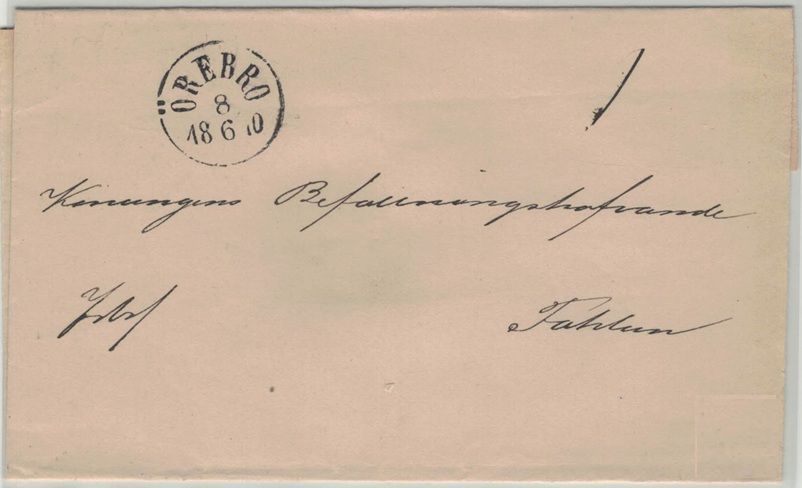 ÖREBRO
8
18 6 10
Konungens Befallningshafvande
Fahlun